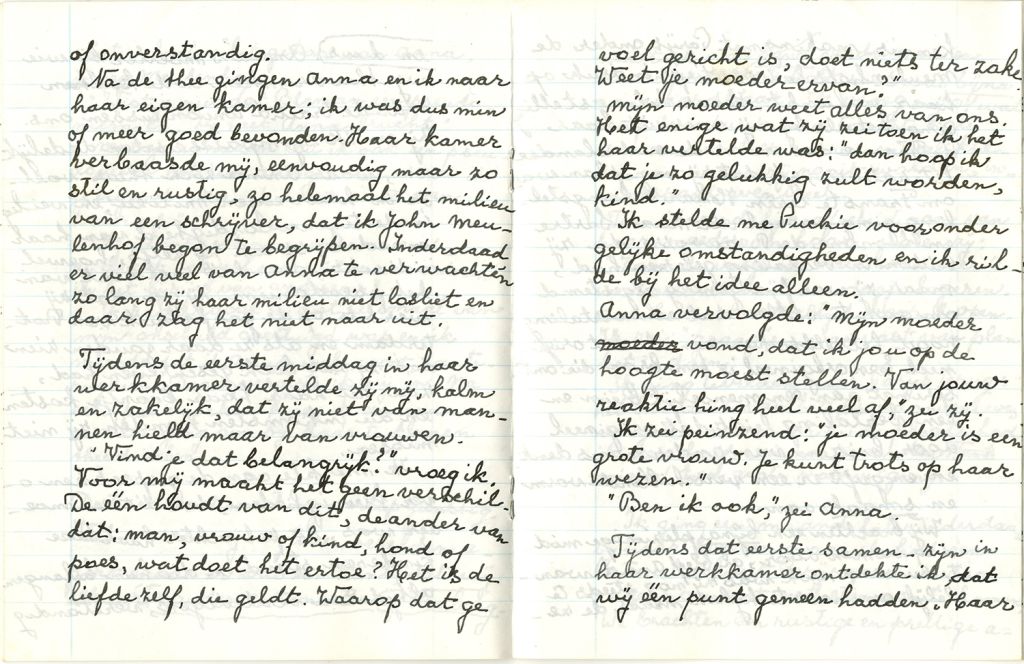 of onverstandig.
Na de thee gingen Anna en ik naar
haar eigen kamer; ik was dus min
of meer goed bevonden. Haar kamer
verbaasde mij, eenvoudig maar zo
stil en rustig, zo helemaal het milieu
van een schrijver, dat ik John Meu-
lenhof begon te begrijpen. Inderdaad
er viel veel van Anna te verwachten
zo lang zij haar milieu niet losliet en
daar zag het niet naar uit.
Tijdens de eerste middag in haar
werkkamer vertelde zij mij, kalm
en zakelijk, dat zij niet van man-
nen hield maar van vrouwen.
"Vind je dat belangrijk?" vroeg ik.
Voor mij maakt het geen verschil.
De één houdt van dit, de ander van
dàt: man, vrouw of kind, hond of
poes, wat doet het ertoe? Het is de
liefde zelf, die geldt. Waarop dat ge
voel gericht is, doet niets ter zake.
Weet je moeder ervan?"
"Mijn moeder weet alles van ons.
Het enige wat zij zei toen ik het
haar vertelde was: "dan hoop ik
dat je zo gelukkig zult worden,
kind."
Ik stelde me Puckie voor onder
gelijke omstandigheden en ik ril-
de bij het idee alleen.
Anna vervolgde: "Mijn moeder
moeder vond, dat ik jou op de
hoogte moest stellen. Van jouw
reaktie hing heel veel af," zei zij.
Ik zei peinzend: "je moeder is een
grote vrouw. Je kunt trots op haar
wezen."
"Ben ik ook," zei Anna.
Tijdens dat eerste samen-zijn in
haar werkkamer ontdekte ik dat
wij één punt gemeen hadden. Haar